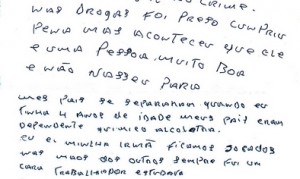 CRIME.
NAS DROGAS FOI PRESO CUMPRIU
PENA MAS ACONTECEU QUE ELE
E UMA PESSOA MUITO BOA
E NÃO NASSEU PARA
MEUS PAIS SE SEPARARAM QUANDO EU
TINHA 4 ANOS DE IDADE MEUS PAIS ERAM
DEPENDENTE QUIMICO ALCOLATRA.
EU E MINHA IRMÃ FICAMOS JOGADOS
NAS MAOS DOS OUTROS SEMPRE FUI UM
CARA TRABALHADOR ESTUDAVA